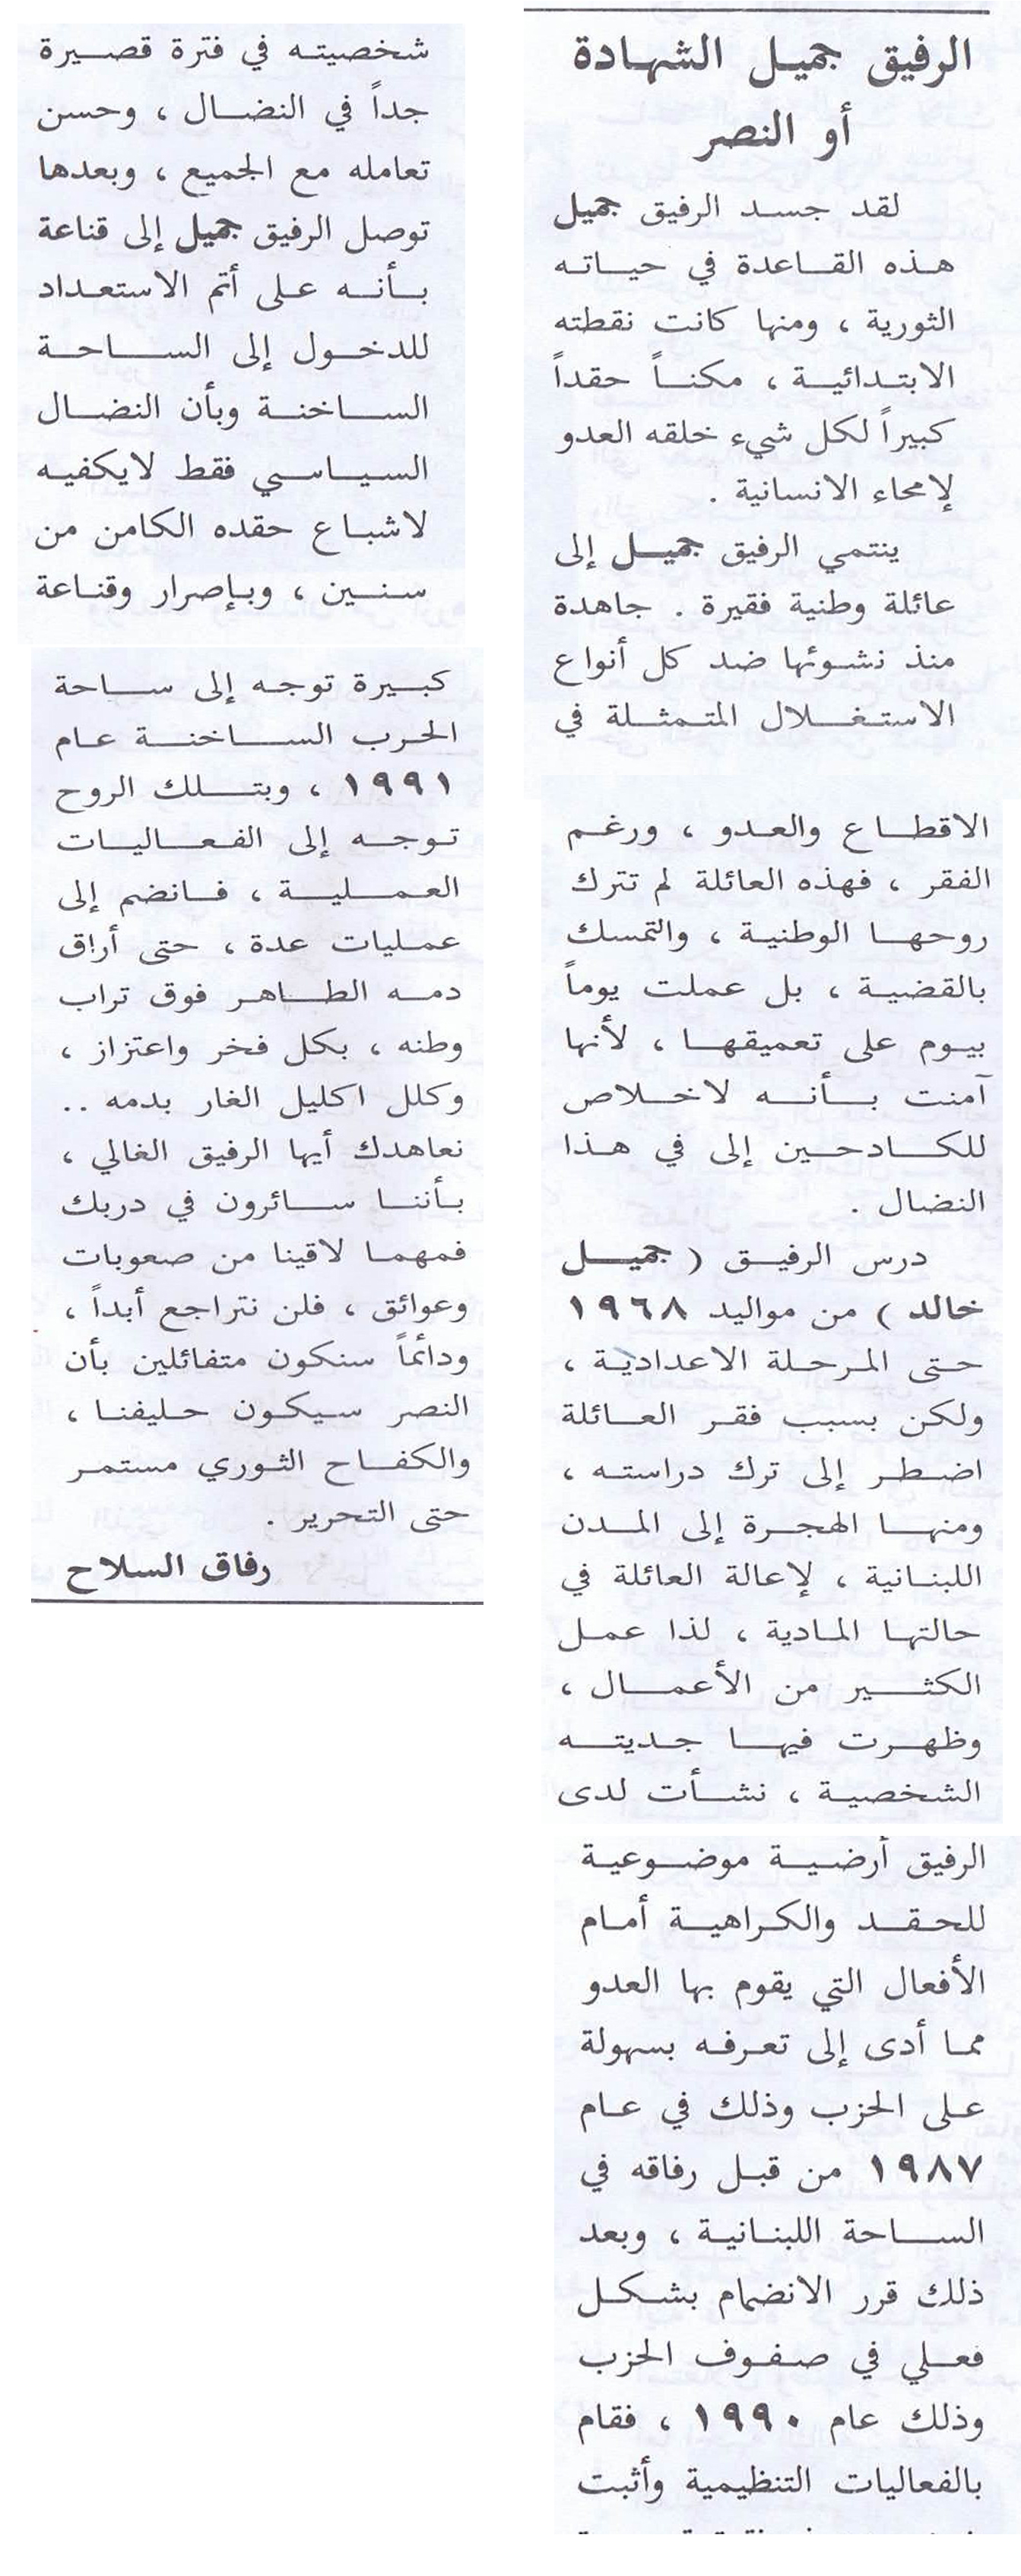 الرفيق جميل الشهادة
أو النصر
لقد جسد الرفيق جميل
هذه القاعدة في حياته
الثورية ، ومنها كانت نقطته
الابتدائية ، مكناً حقداً
كبيراً لكل شيء خلقه العدو
لإمحاء الانسانية .
ينتمي الرفيق جميل إلى
عائلة وطنية فقيرة . جاهدة
منذ نشوئها ضد كل أنواع
الاستغلال المتمثلة في
الاقطاع والعدو ، ورغم
الفقر ، فهذه العائلة لم تترك
روحها الوطنية ، والتمسك
بالقضية ، بل عملت يوماً
بيوم على تعميقها ، لأنها
آمنت بأنه لاخلاص
للكادحين إلى في هذا
النضال .
درس الرفيق ( جميل
خالد ) من مواليد ١٩٦٨
حتى المرحلة الاعدادية ،
ولكن بسبب فقر العائلة
اضطر إلى ترك دراسته ،
ومنها الهجرة إلى المدن
اللبنانية ، لإعالة العائلة في
حالتها المادية ، لذا عمل
الكثير من الأعمال ،
وظهرت فيها جديته
الشخصية ، نشأت لدى
الرفيق أرضية موضوعية
للحقد والكراهية أمام
الأفعال التي يقوم بها العدو
مما أدى إلى تعرفه بسهولة
على الحزب وذلك في عام
١٩٨٧ من قبل رفاقه في
الساحة اللبنانية ، وبعد
ذلك قرر الانضمام بشكل
فعلي في صفوف الحزب
وذلك عام ١٩٩٠ ، فقام
بالفعاليات التنظيمية وأثبت
شخصيته في فترة قصيرة
جداً في النضال ، وحسن
تعامله مع الجميع ، وبعدها
توصل الرفيق جميل إلى قناعة
بأنه على أتم الاستعداد
للدخول إلى الساحة
الساخنة وبأن النضال
السياسي فقط لايكفيه
لاشباع حقده الكامن من
سنين ، وبإصرار وقناعة
كبيرة توجه إلى ساحة
الحرب الساخنة عام
١٩٩١ ، وبتلك الروح
توجه إلى الفعاليات
العملية ، فانضم إلى
عمليات عدة ، حتى أراق
دمه الطاهر فوق تراب
وطنه ، بكل فخر واعتزاز ،
وكلل اكليل الغار بدمه ..
نعاهدك أيها الرفيق الغالي ،
بأننا سائرون في دربك
فمهما لاقينا من صعوبات
وعوائق ، فلن نتراجع أبداً ،
ودائماً سنكون متفائلين بأن
النصر سيكون حليفنا ،
والكفاح الثوري مستمر
حتى التحرير .
رفاق السلاح